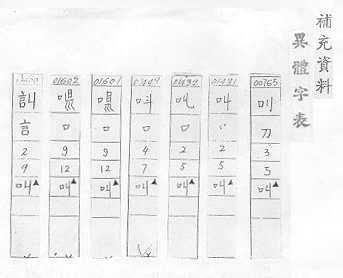 補充資料
異體字表
00765
叫
刀
3
5
叫▲
01431
叫
口
2
5
叫▲
01432
口
2
5
叫▲
口
4
7
叫▲
01601
口
9
12
叫▲
01602
口
9
12
叫▲
訆
言
2
9
叫▲